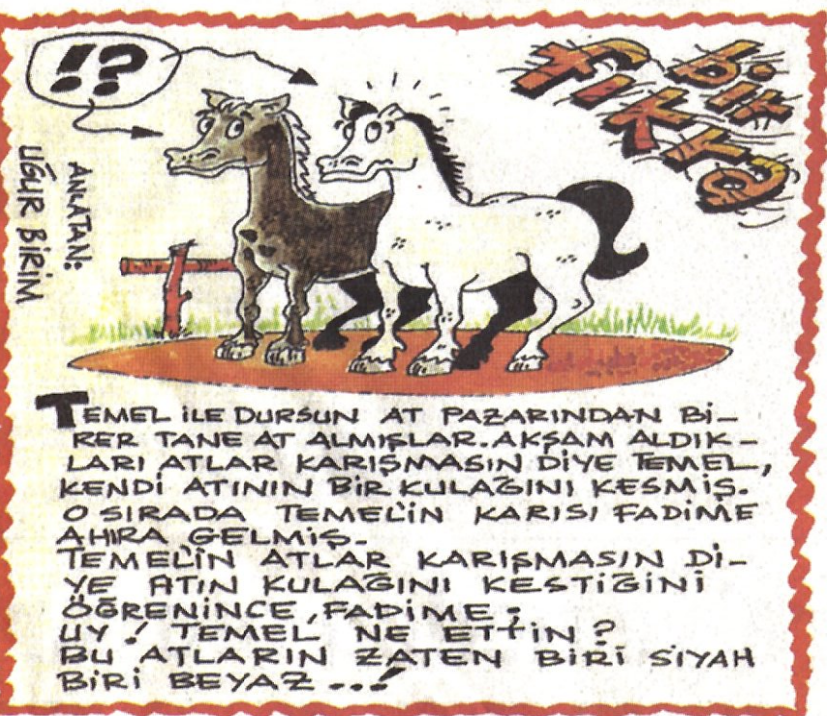 !?
bir
fıkra
ANLATAN:
UĞUR BİRİM
TEMEL İLE DURSUN AT PAZARINDAN Bİ-
RER TANE AT ALMIŞLAR. AKŞAM ALDIK-
LARI ATLAR KARIŞMASIN DİYE TEMEL,
KENDİ ATININ BİR KULAĞINI KESMİŞ.
O SIRADA TEMEL'İN KARISI FADİME
AHIRA GELMİŞ.
TEMEL'İN ATLAR KARIŞMASIN Dİ-
YE ATIN KULAĞINI KESTİĞİNİ
ÖĞRENİNCE, FADİME;
UY! TEMEL NE ETTİN?
BU ATLARIN ZATEN BİRİ SİYAH
BİRİ BEYAZ...!